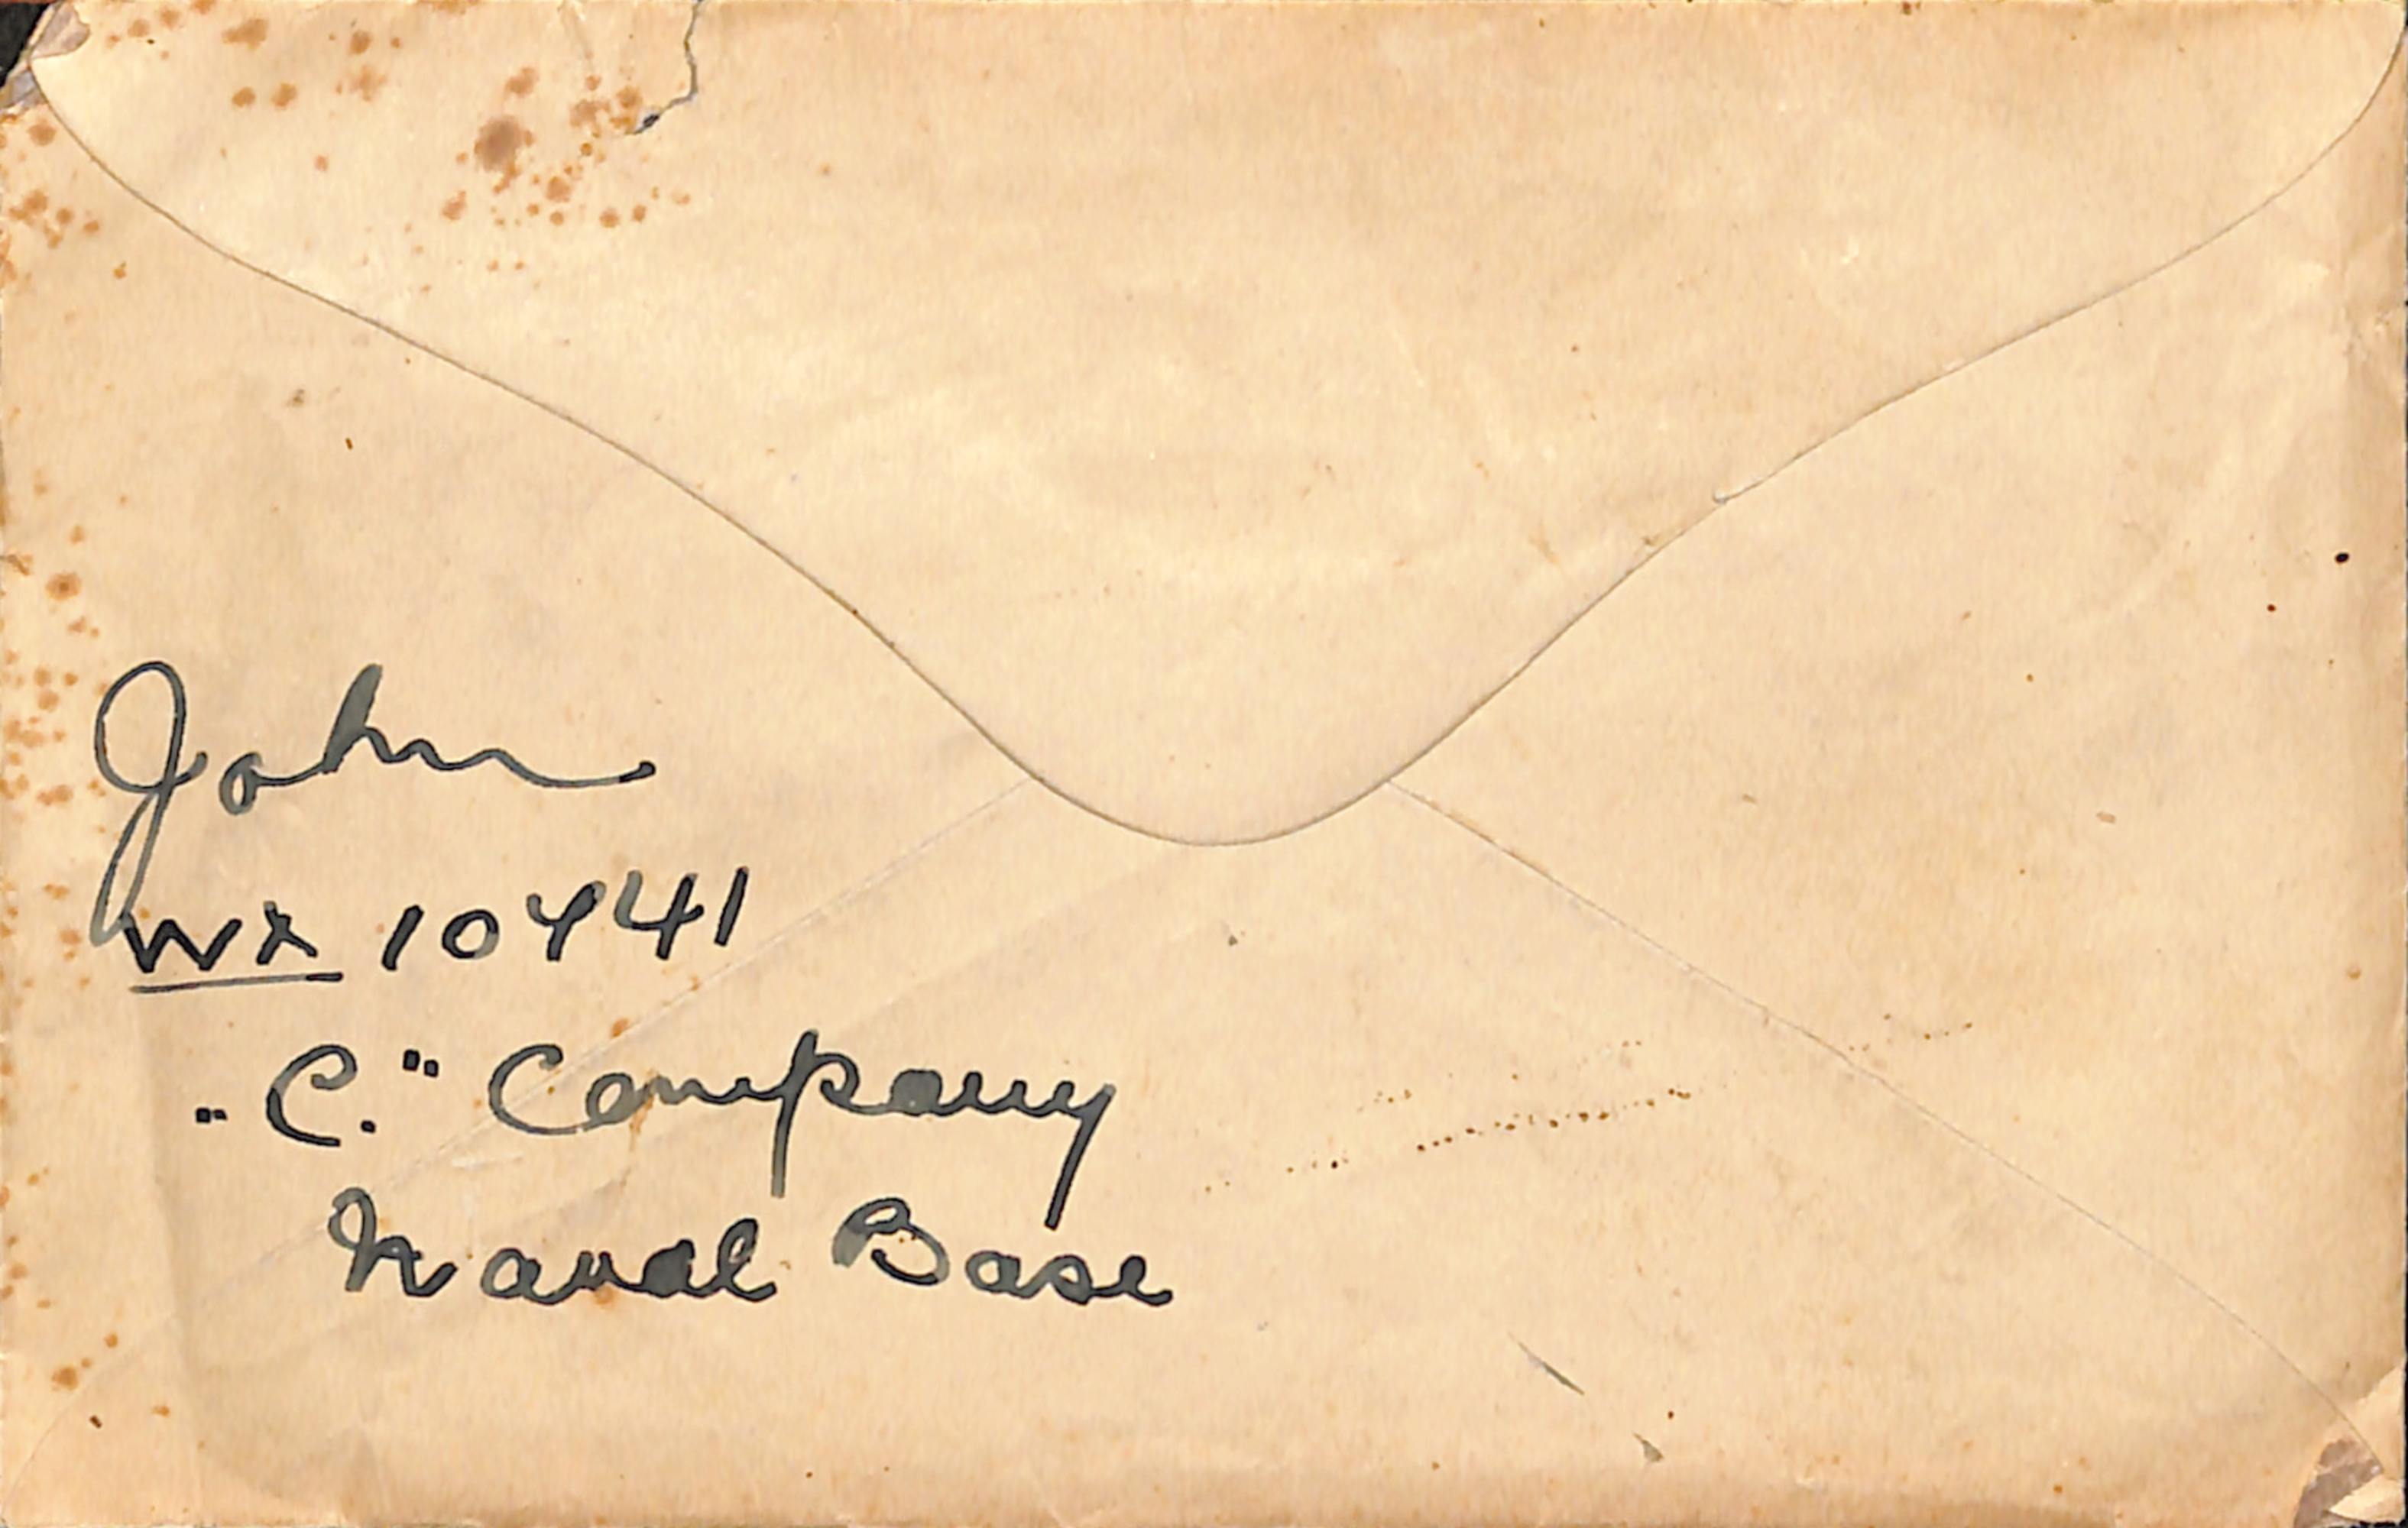 John
WX 10441
"C." Company
Naval Base